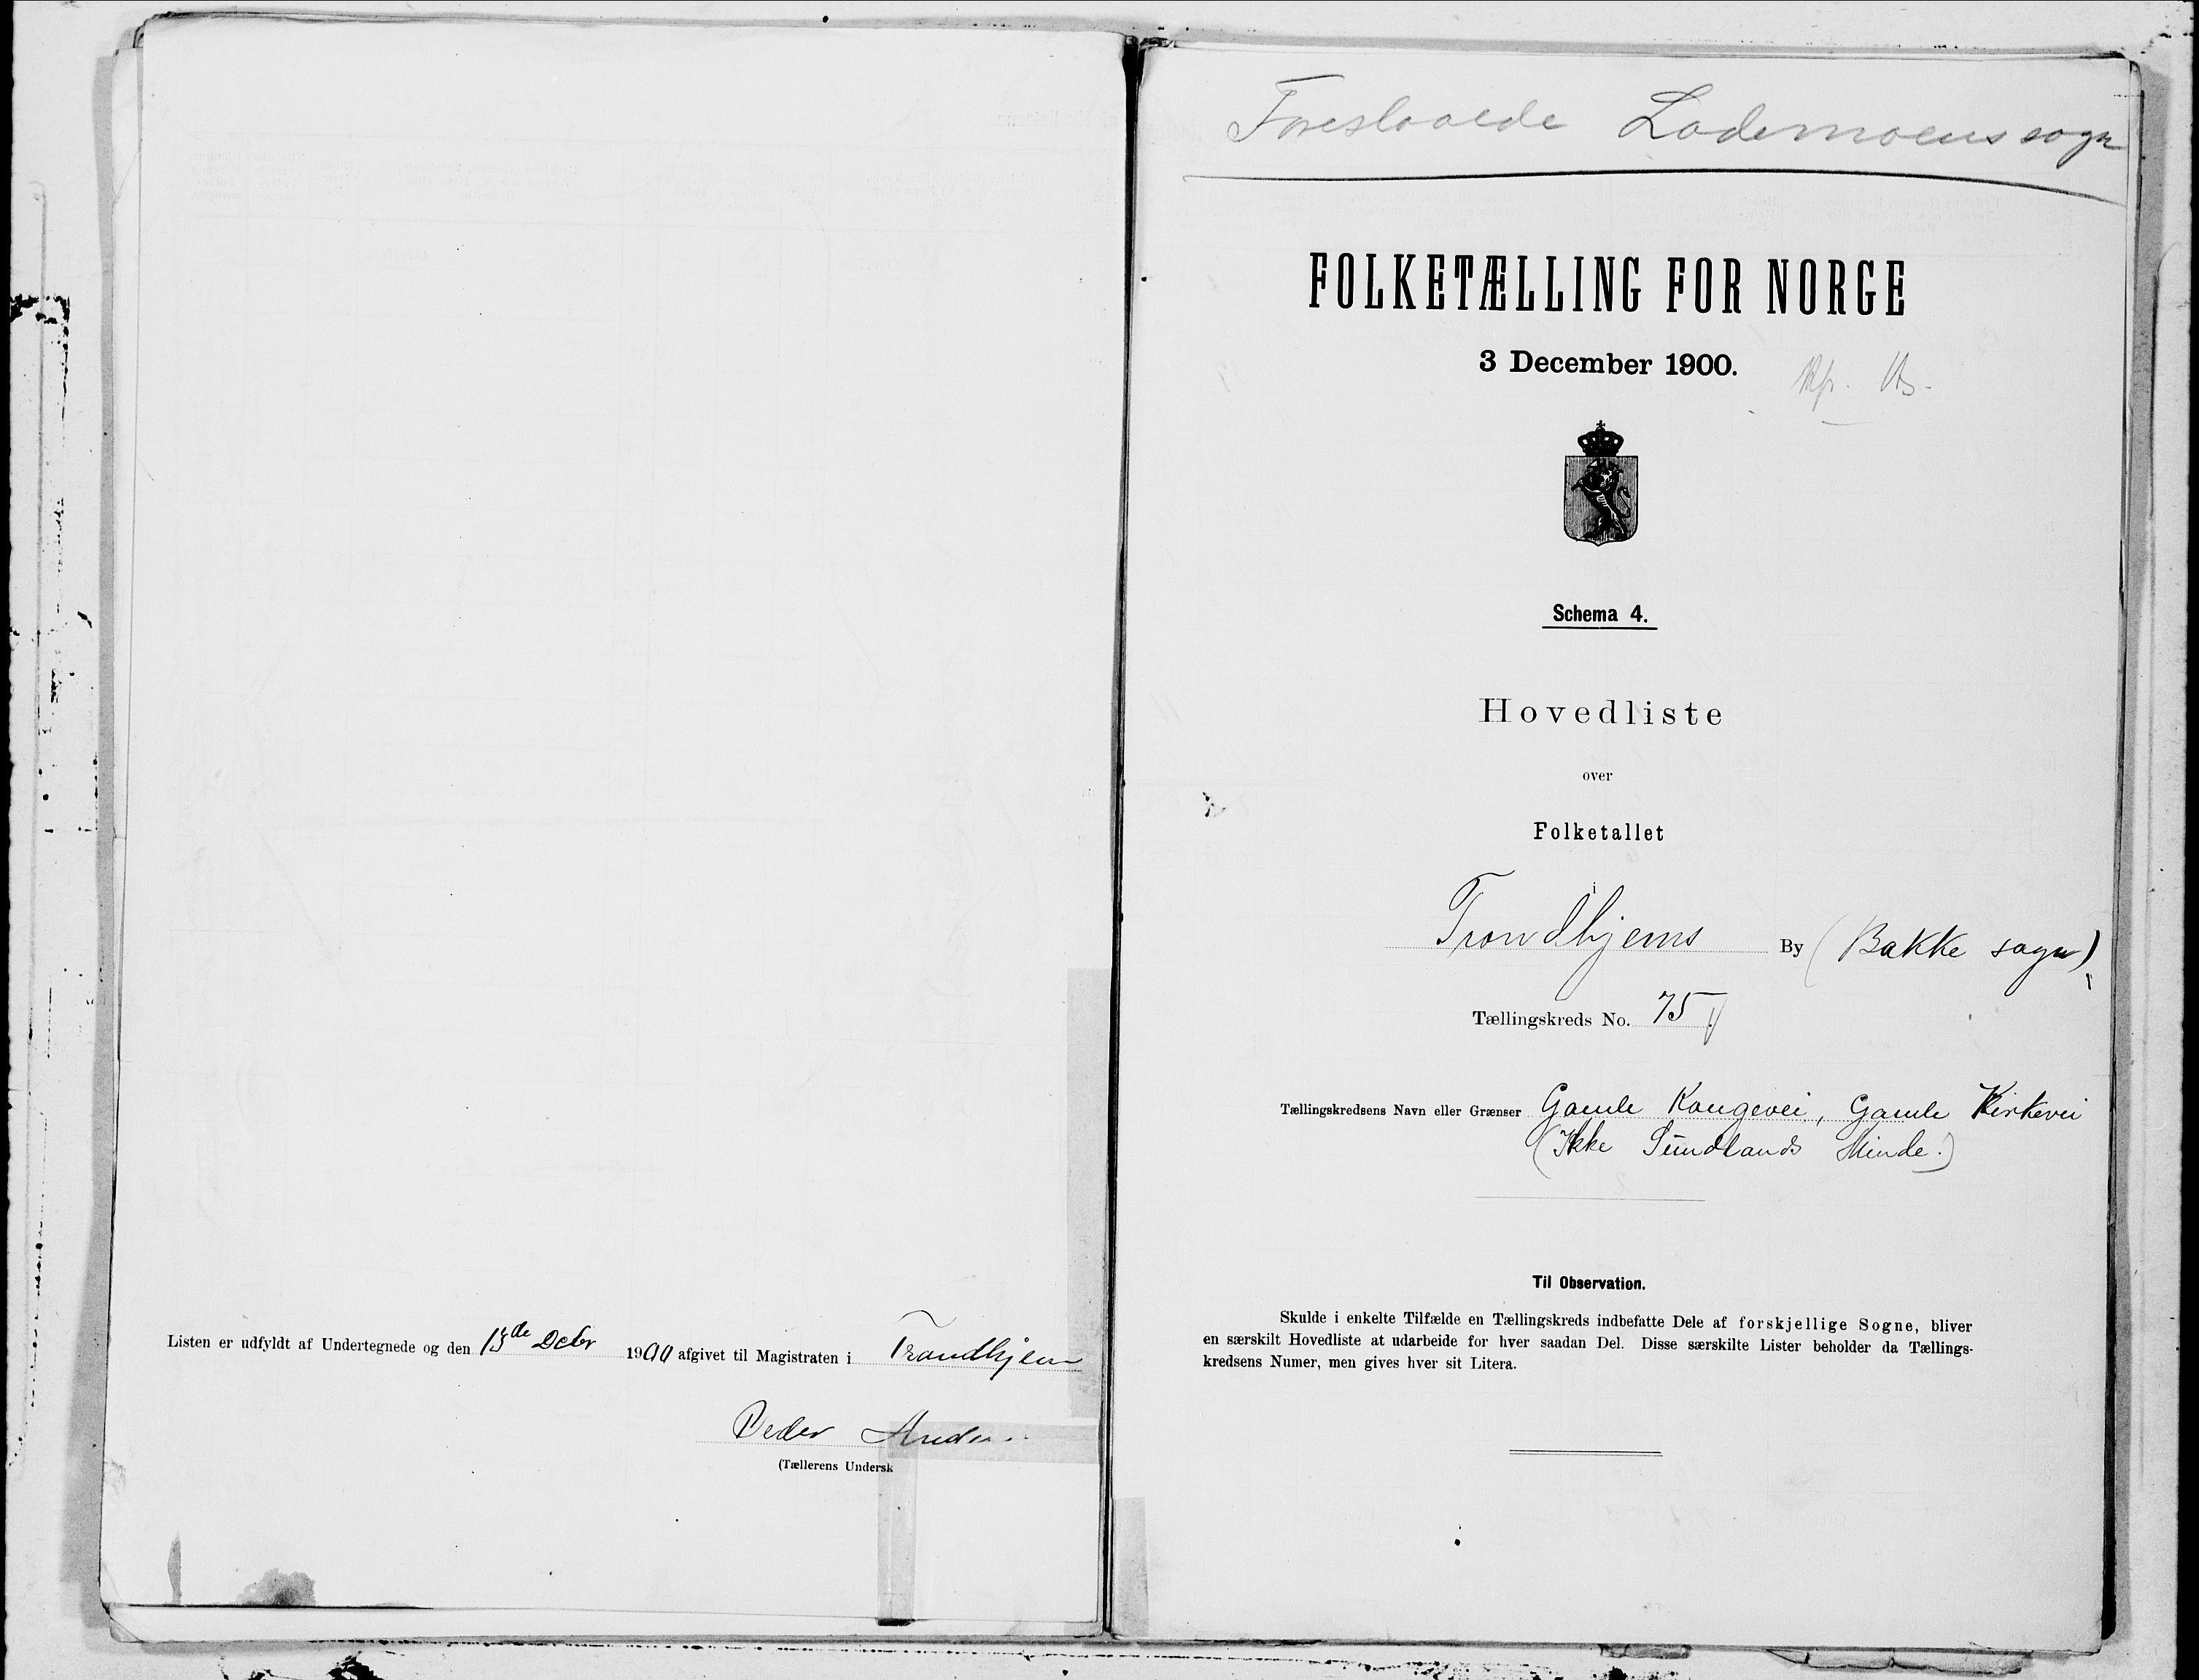 Listen er udfyldt af Undertegnede og den 13de Decbr 1900 afgivet til Magistraten i Trondhjem
Peder
(Tællerens Undersk
Foreslaaede Lademoens sogn
FOLKETÆLLING FOR NORGE
3 December 1900.
Schema 4.
Hovedliste
over
Folketallet
i
Trondhjems By (Bakke sogn)
Tællingskreds No. 75
Tællingskredsens Navn eller Grænser Gamle Kongevei, Gamle Kirkevei
(Ikke Sundlands Minde.)
Til Observation.
Skulde i enkelte Tilfælde en Tællingskreds indbefatte Dele af forskjellige Sogne, bliver
en særskilt Hovedliste at udarbeide for hver saadan Del. Disse særskilte Lister beholder da Tællings-
kredsens Numer, men gives hver sit Litera.